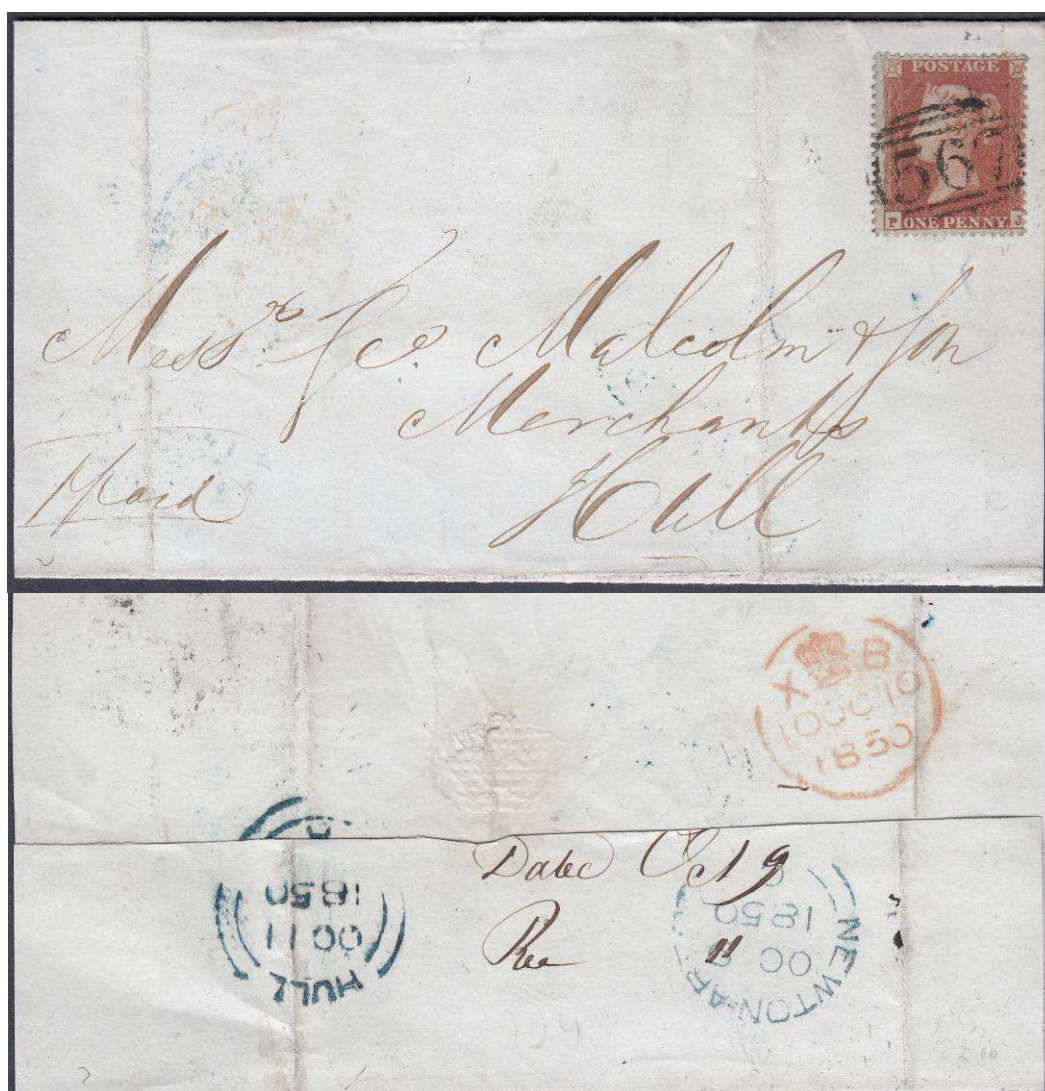 POSTAGE
567
P ONE PENNY J
Messrs Geo. Malcolm & Son
Merchants
Hull
Paid
X B
10 OC 10
1850
Dated Oct 9
Rec 11
HULL
OC 11
1850
NEWTON-AB
OC 9
1850